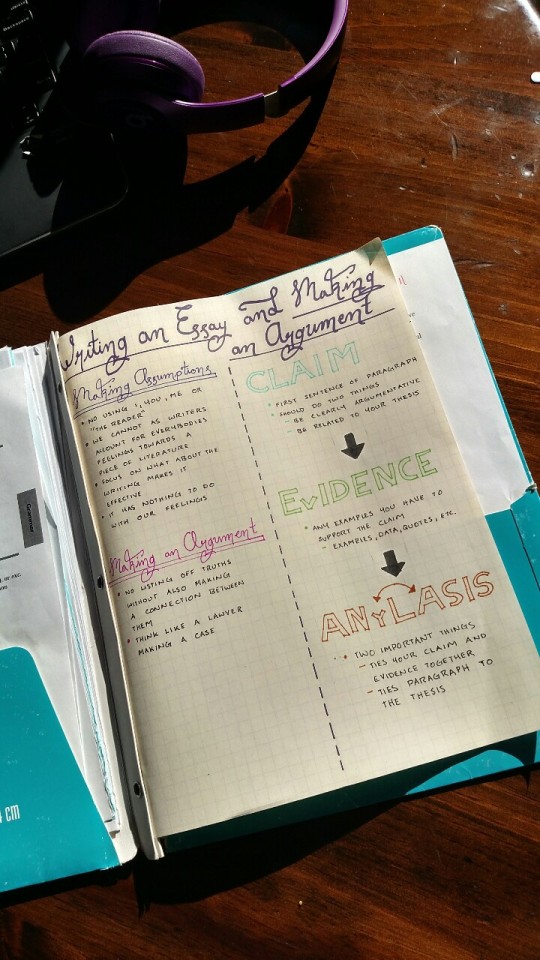 Writing an Essay and Making
an Argument
Making Assumptions
• NO USING I, YOU, ME OR
"THE READER"
• WE CANNOT AS WRITERS
AMOUNT FOR EVERYBODIES
FEELINGS TOWARDS A
PIECE OF LITERATURE
• FOCUS ON WHAT ABOUT THE
WRITING MAKES IT
EFFECTIVE
• IT HAS NOTHING TO DO
WITH OUR FEELINGS
Making an Argument
• NO LISTING OFF TRUTHS
WITHOUT ALSO MAKING
A CONNECTION BETWEEN
THEM
• THINK LIKE A LAWYER
MAKING A CASE
CLAIM
• FIRST SENTENCE OF PARAGRAPH
• SHOULD DO TWO THINGS
- BE CLEARLY ARGUMENTATIVE
- BE RELATED TO YOUR THESIS
EvIDENCE
• ANY EXAMPLES YOU HAVE TO
SUPPORT THE CLAIM
- EXAMPLES, DATA, QUOTES, ETC.
ANyLASIS
• TWO IMPORTANT THINGS
- TIES YOUR CLAIM AND
EVIDENCE TOGETHER
- TIES PARAGRAPH TO
THE THESIS
CM